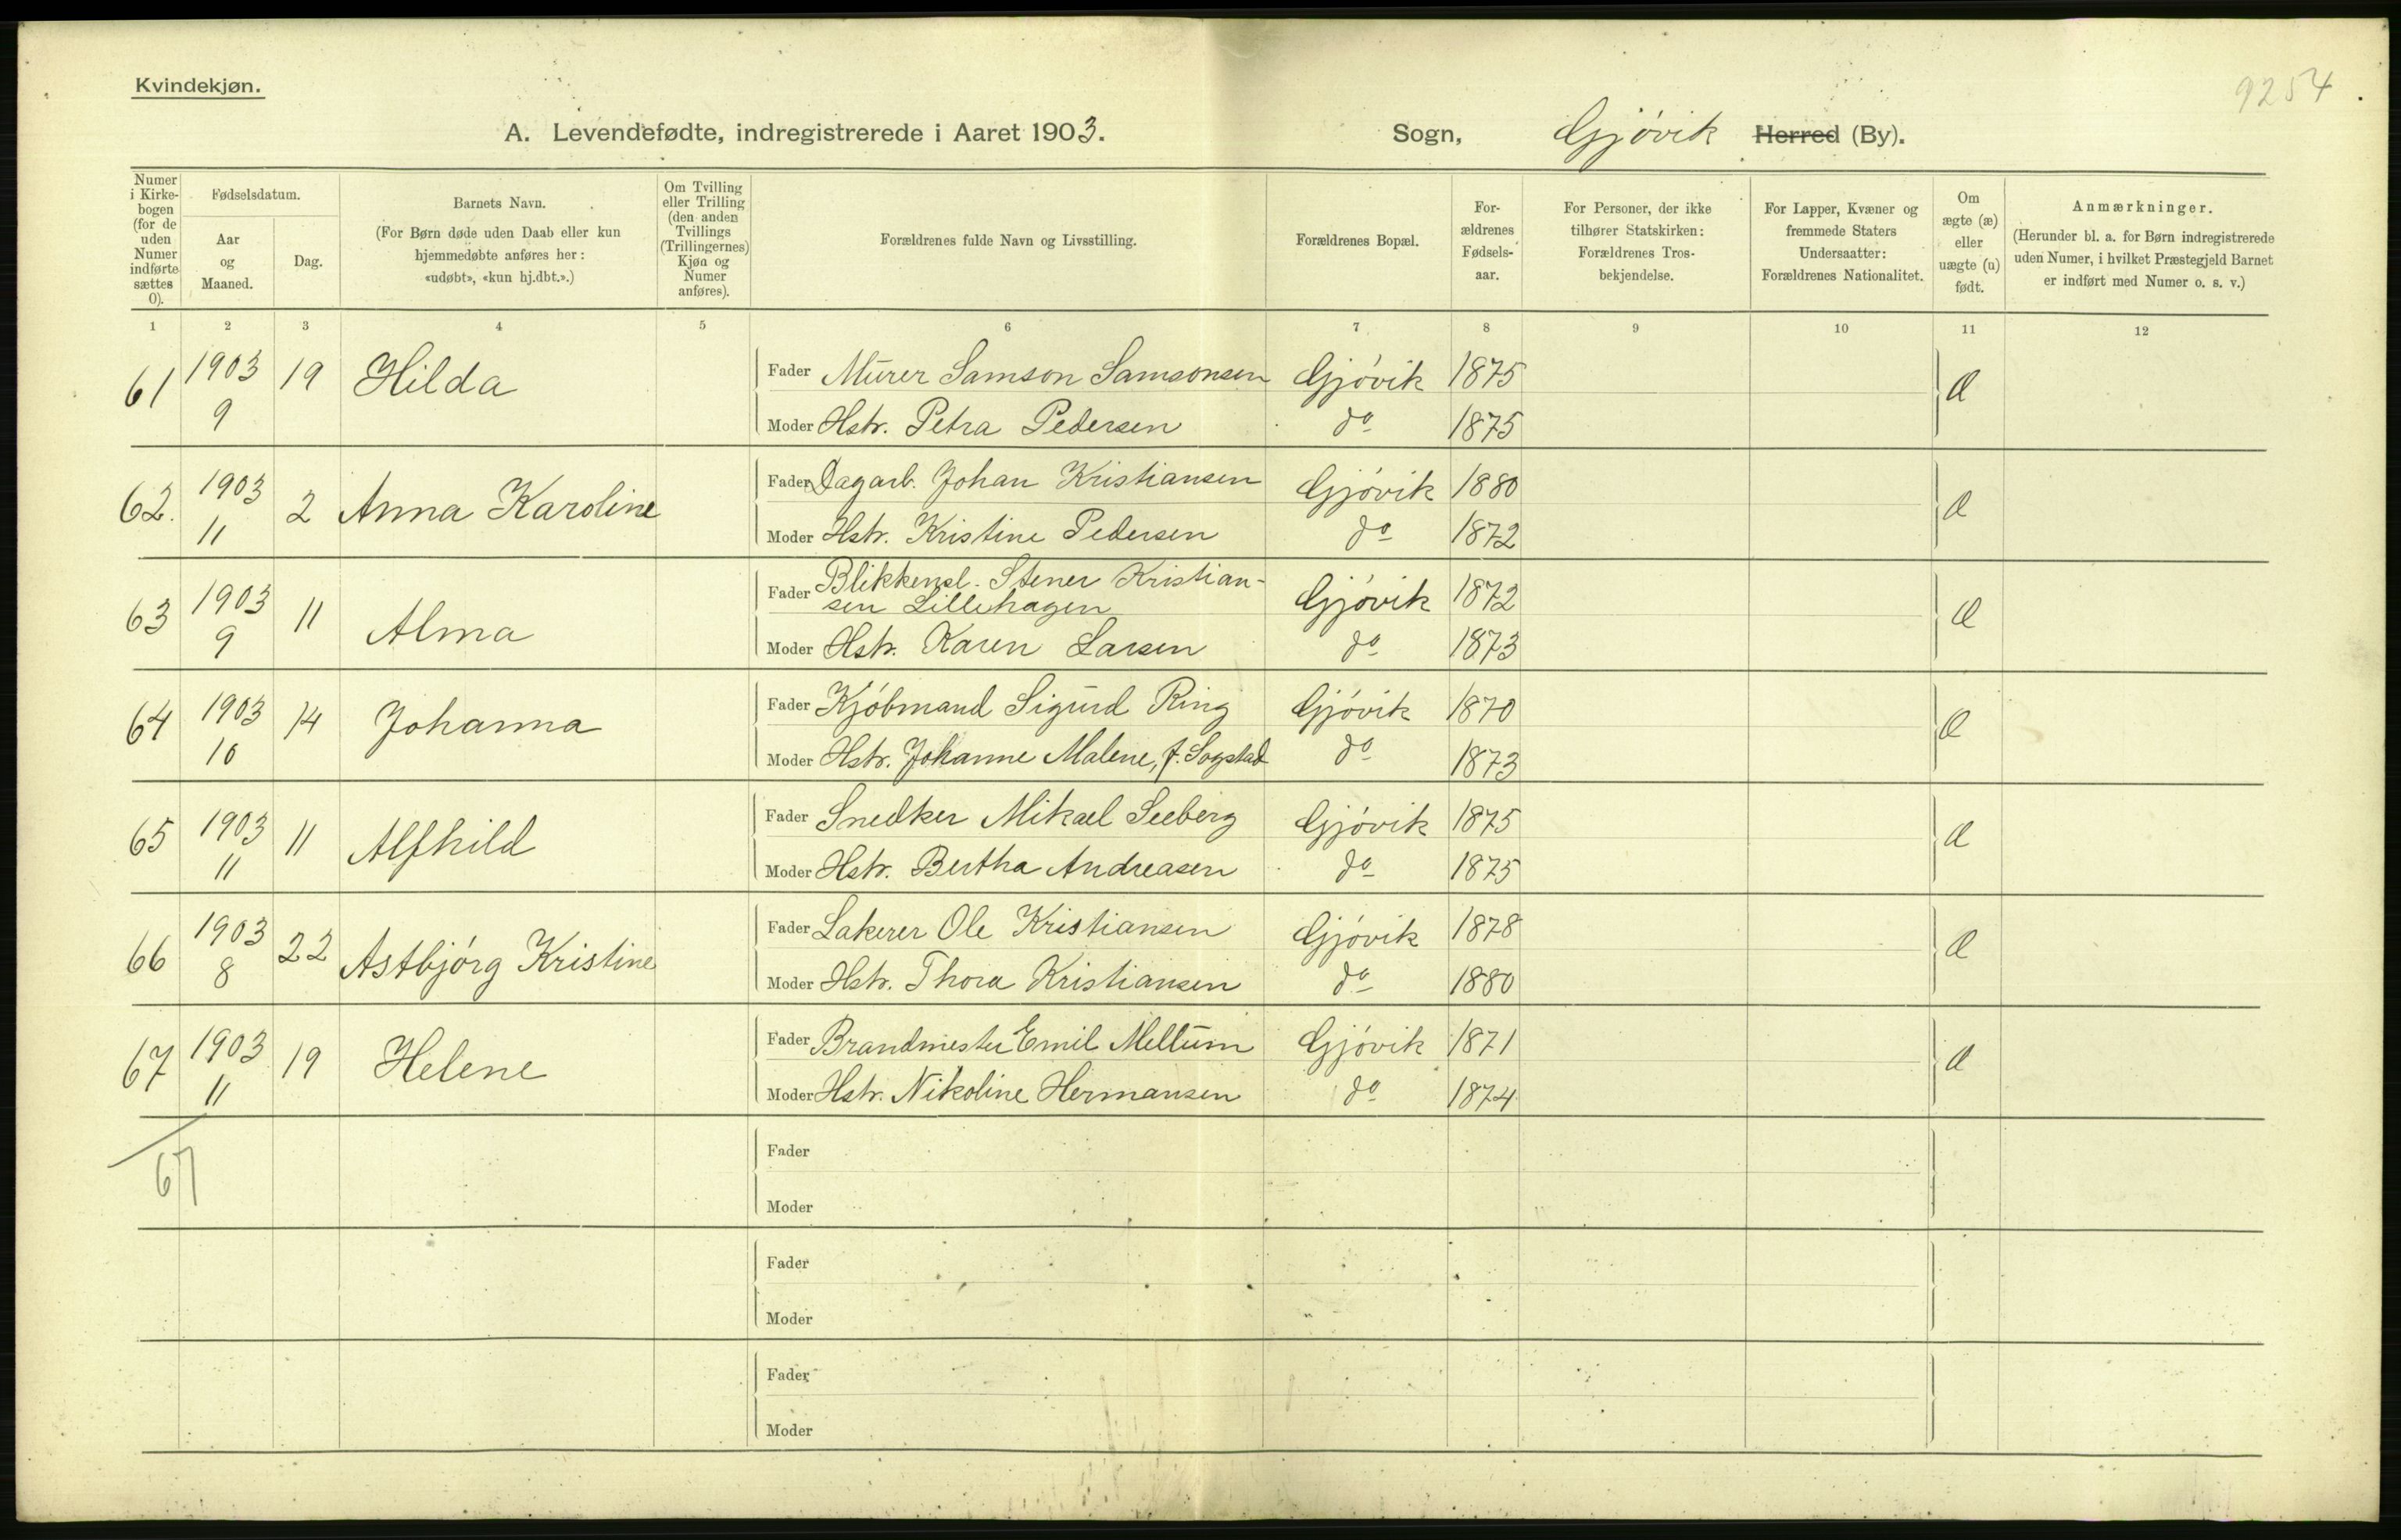 Kvindekjøn.
9254
A. Levendefødte, indregistrerede i Aaret 1903. Sogn, Gjövik Herred (By).
Numer i Kirkebogen (for de uden Numer indførte sættes 0).
Fødselsdatum.
Aar og Maaned.
Dag.
Barnets Navn.
(For Børn døde uden Daab eller kun
hjemmedøbte anføres her:
«udøbt», «kun hj.dbt.».)
Om Tvilling
eller Trilling
(den anden
Tvillings
(Trillingernes)
Kjøn og
Numer
anføres).
Forældrenes fulde Navn og Livsstilling.
Forældrenes Bopæl.
For-
ældrenes
Fødsels-
aar.
For Personer, der ikke
tilhører Statskirken:
Forældrenes Tros-
bekjendelse.
For Lapper, Kvæner og
fremmede Staters
Undersaatter:
Forældrenes Nationalitet.
Om
ægte (æ)
eller
uægte (u)
født.
Anmærkninger.
(Herunder bl. a. for Børn indregistrerede
uden Numer, i hvilket Præstegjeld Barnet
er indført med Numer o. s. v.)
1 2 3 4 5 6 7 8 9 10 11 12
61 1903 9 19 Hilda Fader Murer Samson Samsonsen Gjövik 1875 Æ
Moder Hstr. Petra Pedersen do 1875
62. 1903 11 2 Anna Karoline Fader Dagarb. Johan Kristiansen Gjövik 1880 Æ
Moder Hstr. Kristine Pedersen do 1872
63 1903 9 11 Alma Fader Blikkensl. Stener Kristian-
sen Lillehagen Gjövik 1872 Æ
Moder Hstr. Karen Larsen do 1873
64 1903 10 14 Johanna Fader Kjöbmand Sigurd Ring Gjövik 1870 Æ
Moder Hstr. Johanne Malene, f. Sogstad do 1873
65 1903 11 11 Alfhild Fader Snedker Mikael Seeberg Gjövik 1875 Æ
Moder Hstr. Bertha Andreasen do 1875
66 1903 8 22 Astbjörg Kristine Fader Lakerer Ole Kristiansen Gjövik 1878 Æ
Moder Hstr. Thora Kristiansen do 1880
67 1903 11 19 Helene Fader Brandmester Emil Mellum Gjövik 1871 Æ
Moder Hstr. Nikoline Hermansen do 1874
67
Fader
Moder
Fader
Moder
Fader
Moder